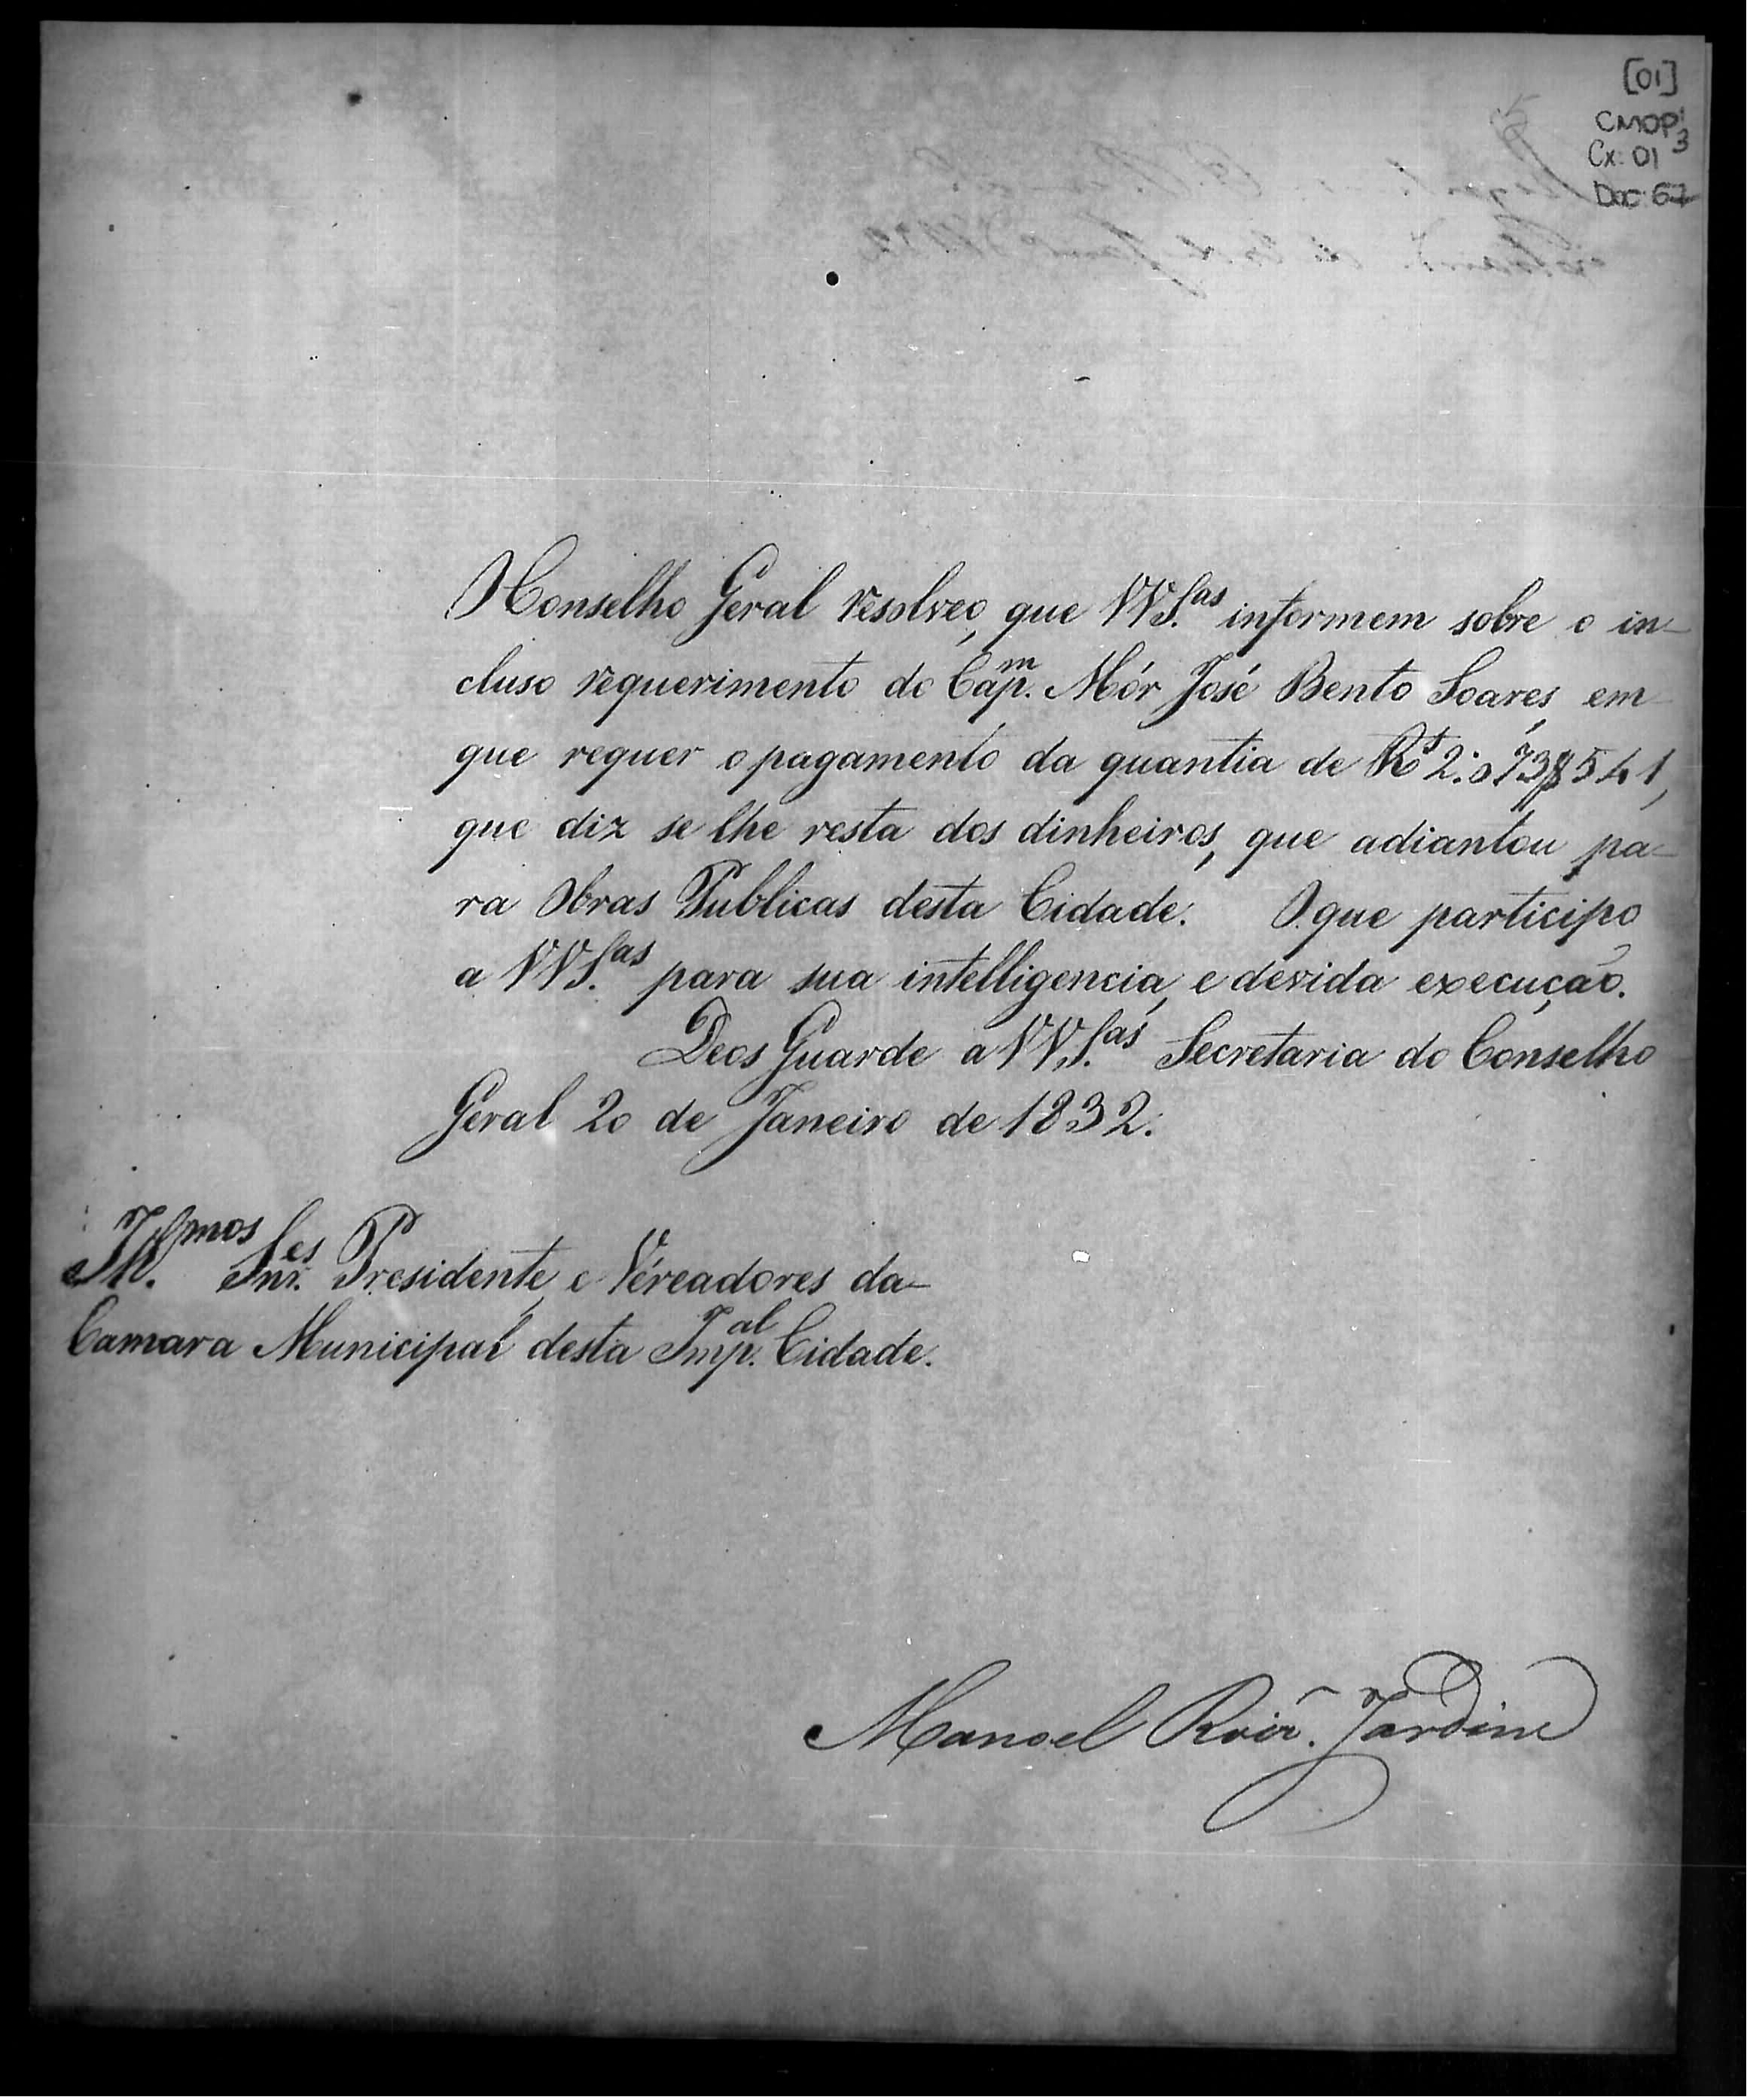 [01]
CMOP 3
Cx: 01
Doc: 67
O Conselho Geral resolveo, que VVS.as informem sobre o in-
cluso requerimento do Cap.m Mór José Bento Soares, em
que requer o pagamento da quantia de Rs 2:073$541,
que diz se lhe resta dos dinheiros, que adiantou pa-
ra Obras Publicas desta Cidade. O que participo
a VVS.as para sua intelligencia, e devida execução.
Deos Guarde a VV.S.as Secretaria do Conselho
Geral 20 de Janeiro de 1832.
Ill.mos Snr.es Presidente, e Vereadores da
Camara Municipal desta Imp.al Cidade.
Manoel Roiz. Jardim